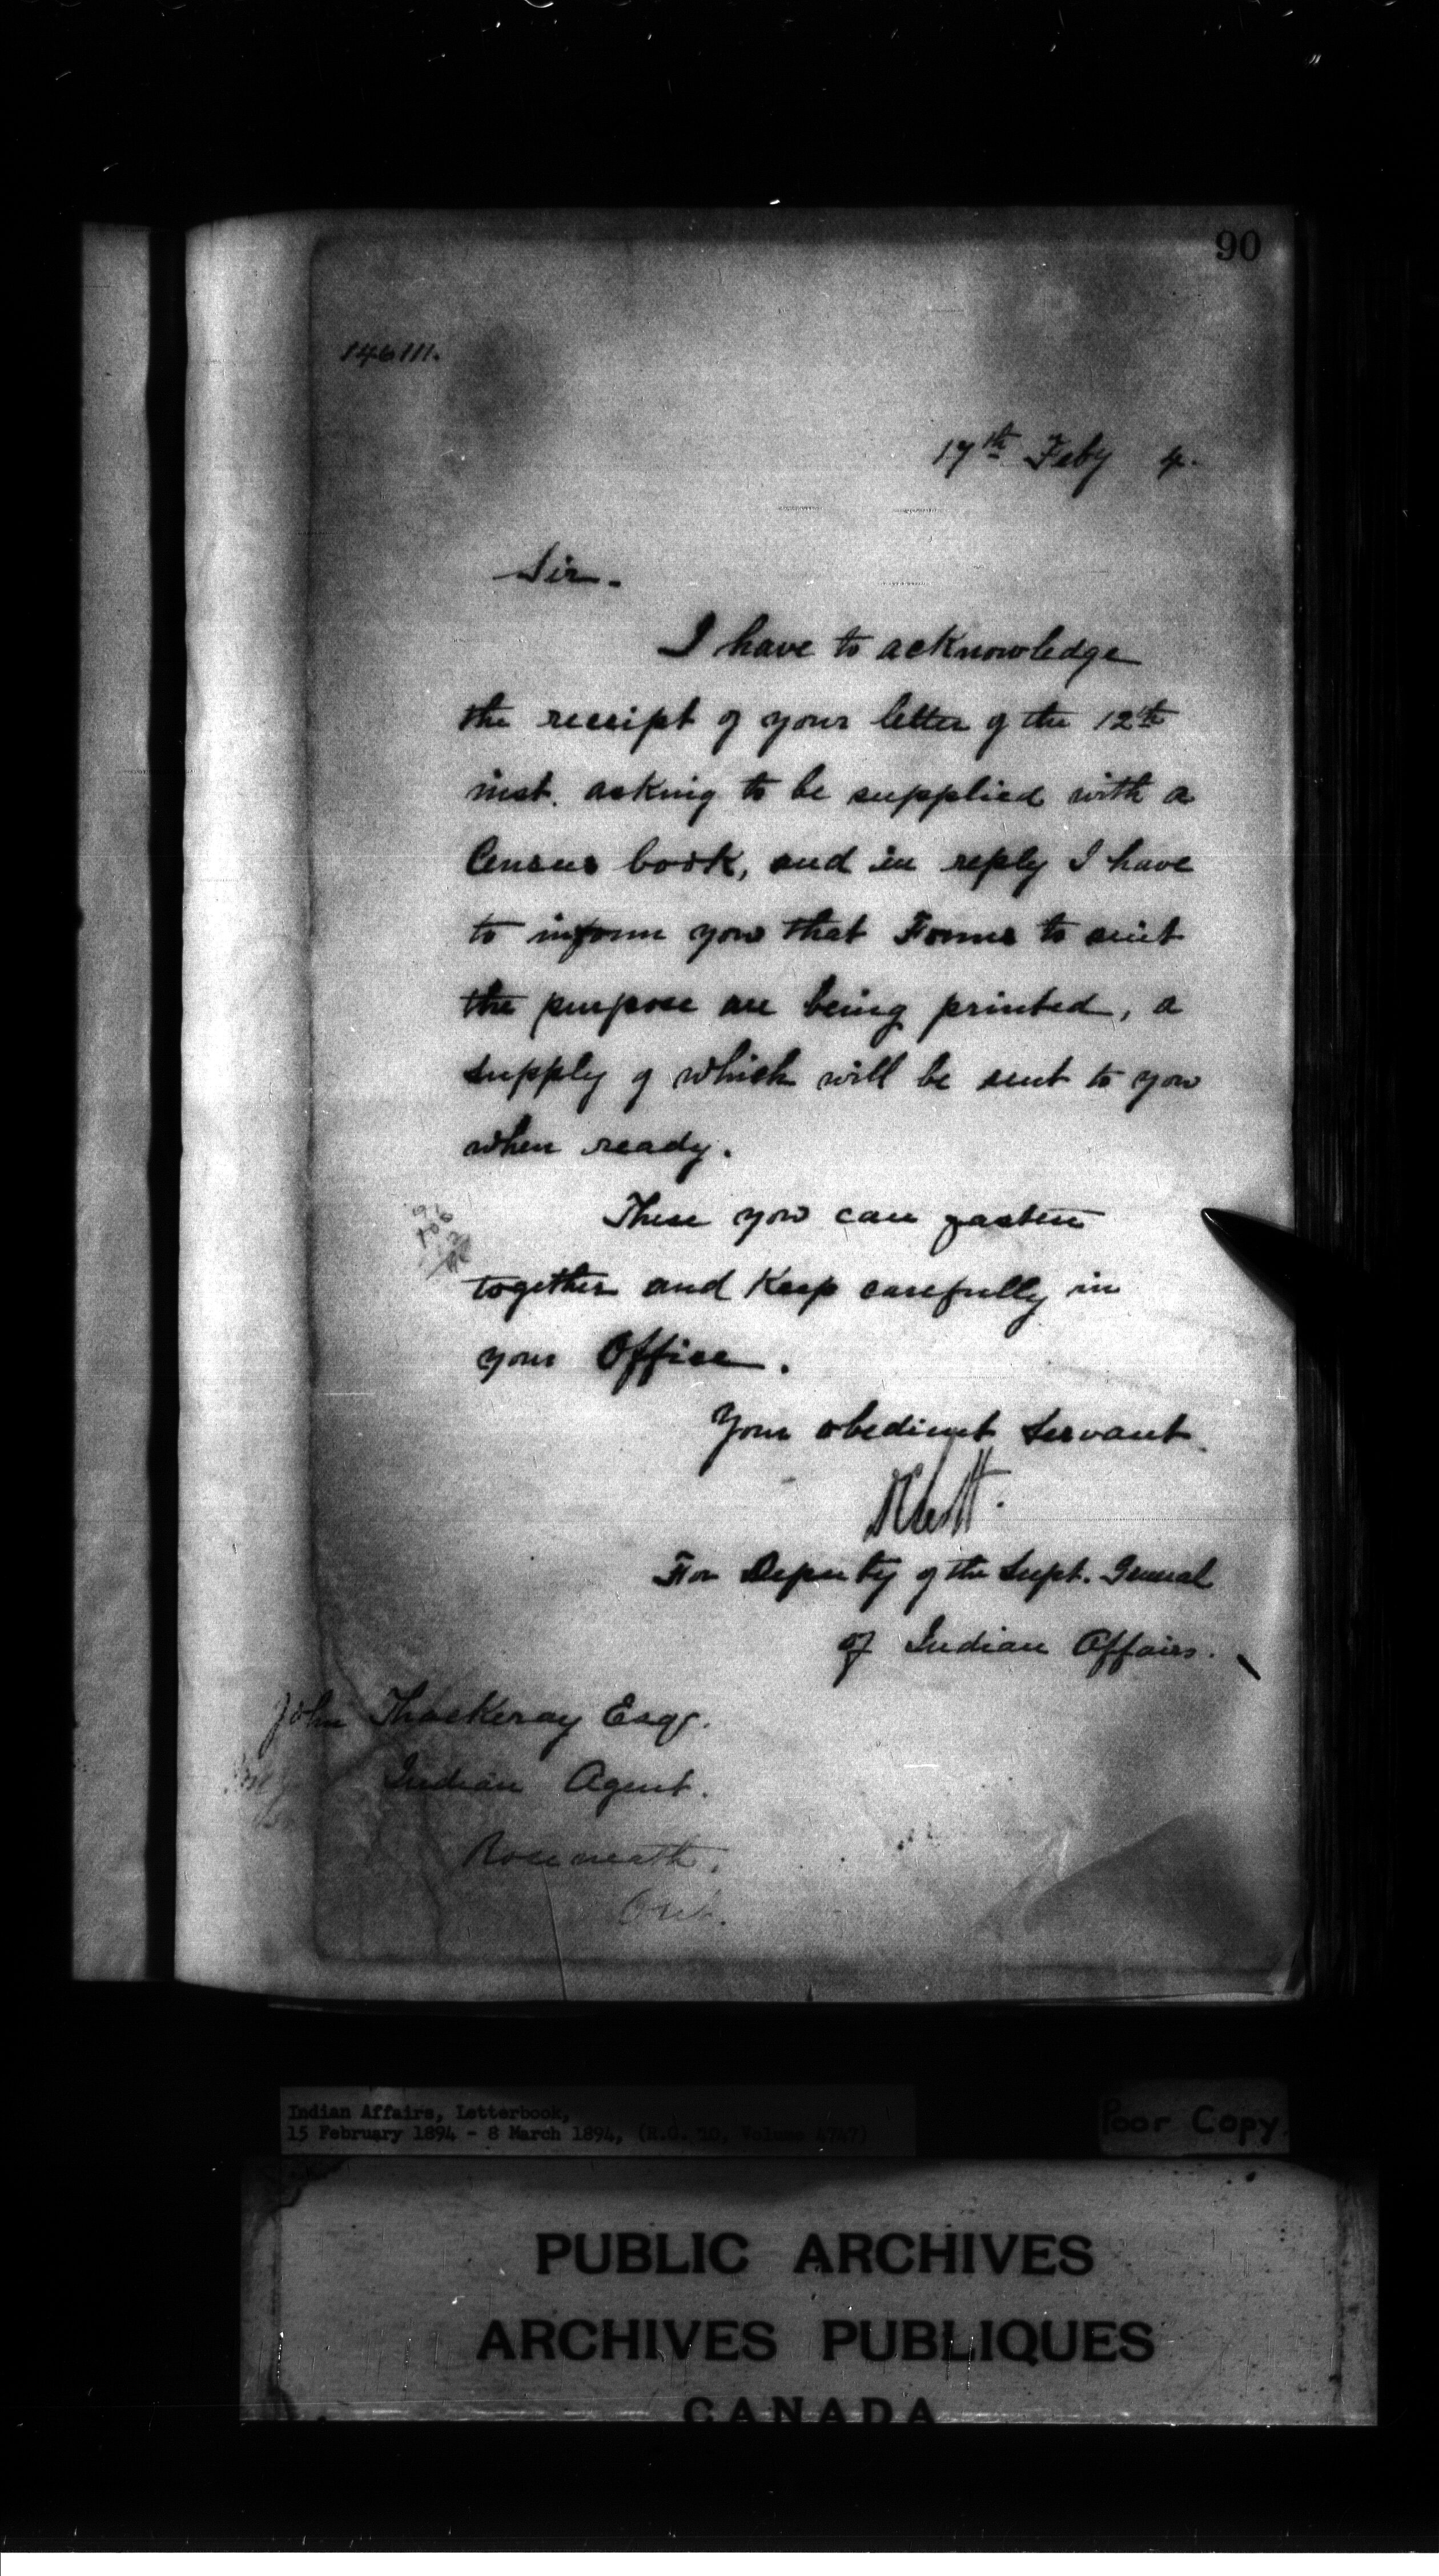 90
146111.
17th Feby 4.
Sir.
I have to acknowledge
the receipt of your letter of the 12th
inst. asking to be supplied with a
Census book, and in reply I have
to inform you that Forms to suit
the purpose are being printed, a
supply of which will be sent to you
when ready.
These you can fasten
together and Keep carefully in
your Office.
Your obedient Servant.
For Deputy of the Supt. General
of Indian Affairs.
John Thackeray Esqr.
Indian Agent.
Roseneath,
Ont.
Indian Affairs, Letterbook,
15 February 1894 - 8 March 1894, (R.G. 10, Volume 4747)
Poor Copy
PUBLIC ARCHIVES
ARCHIVES PUBLIQUES
CANADA